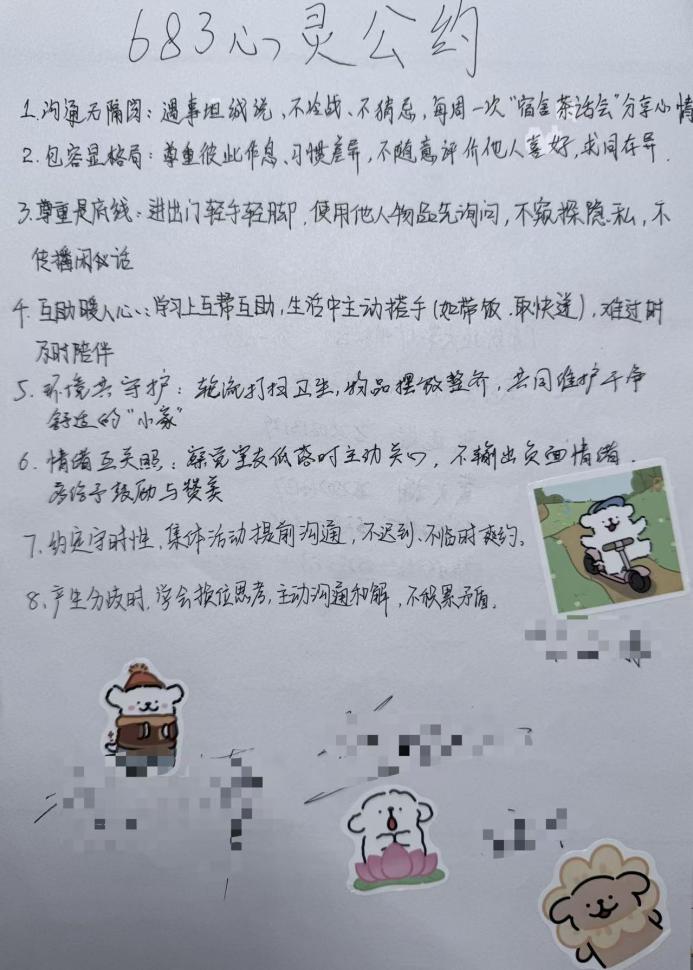 683心灵公约
1.沟通无隔阂：遇事坦诚说、不冷战、不猜忌，每周一次“宿舍茶话会”分享心情
2.包容显格局：尊重彼此作息、习惯差异，不随意评价他人喜好，求同存异.
3.尊重是底线：进出门轻手轻脚，使用他人物品先询问，不窥探隐私，不
传播闲似话
4.互助暖人心：学习上互帮互助，生活中主动搭手（如带饭.取快递），难过时
及时陪伴
5.环境共守护：轮流打扫卫生，物品摆放整齐，共同维护干净
舒适的“小家”
6.情绪互关照：察觉室友低落时主动关心，不输出负面情绪.
多给予鼓励与赞美
7.约定守时性，集体活动提前沟通，不迟到、不临时爽约。
8、产生分歧时，学会换位思考，主动沟通和解，不积累矛盾。